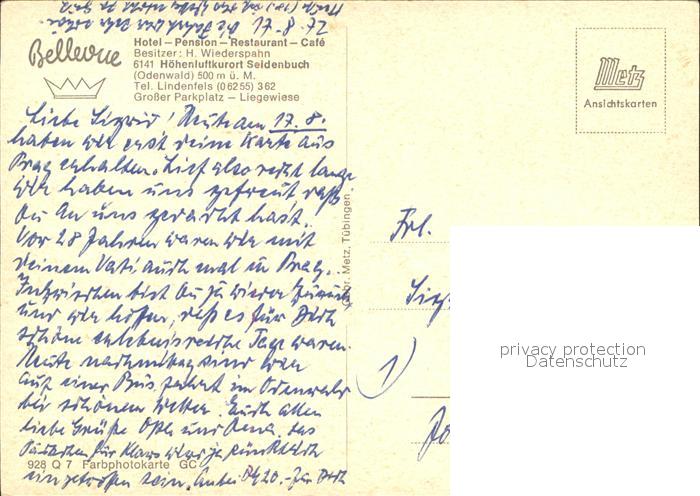 Bellevue
Hotel – Pension – Restaurant – Café
Besitzer: H. Wiederspahn
6141 Höhenluftkurort Seidenbuch
(Odenwald) 500 m ü. M.
Tel. Lindenfels (06255) 362
Großer Parkplatz – Liegewiese
Liebe Sigrid! Heute am 17.8.
haben wir erst deine Karte aus
Prag erhalten. Lief also recht lange
wir haben uns gefreut, daß
Du An uns gedacht hast.
Vor 28 Jahren waren wir mit
deinem Vati auch mal in Prag.
Inzwischen bist Du ja wieder zurück
und wir hoffen, daß es für Dich
schöne erlebnisreiche Tage waren.
Heute nachmittag sind wir
auf einer Bus fahrt im Odenwald
bei schönem Wetter. Euch allen
liebe Grüße Opa und Oma, das
für Klaus wird ja pünktlich
eingetroffen sein. Anbei 20.- für Dich
928 Q 7 Farbphotokarte GC
Metz, Tübingen
Metz
Ansichtskarten
Frl.
1)
privacy protection
Datenschutz